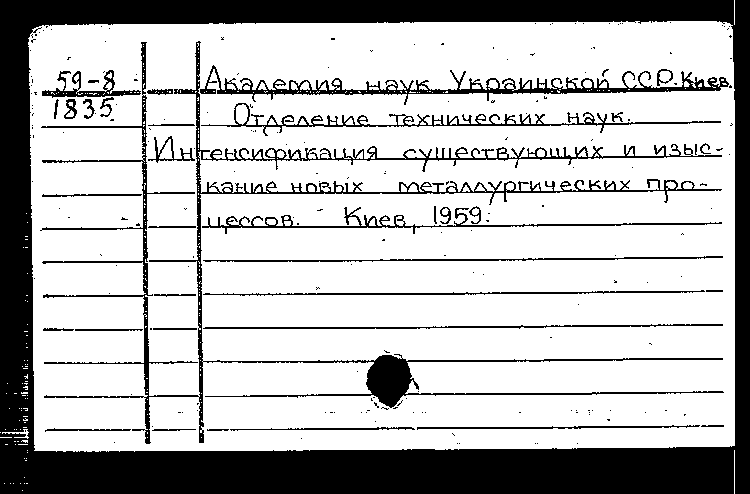 59-8 Академия наук Украинской ССР. Киев.
1835 Отделение технических наук.
Интенсификация существующих и изыс-
кание новых металлургических про-
цессов. Киев, 1959.